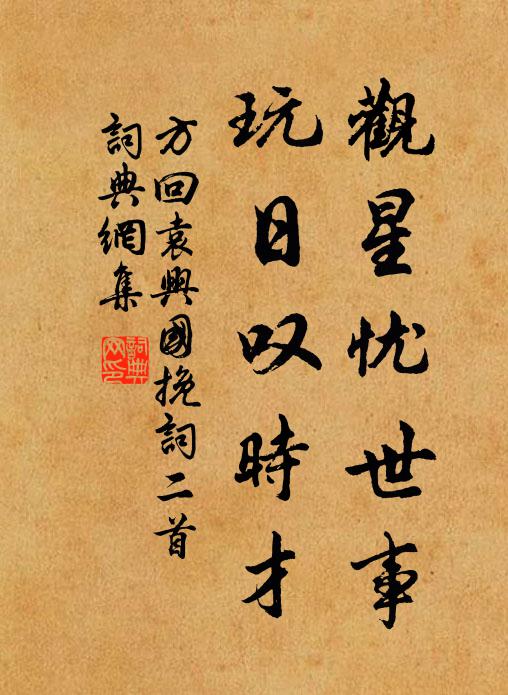 觀星忧世事
玩日叹時才
方回袁興國挽詞二首
詞典網集
詞典
网印